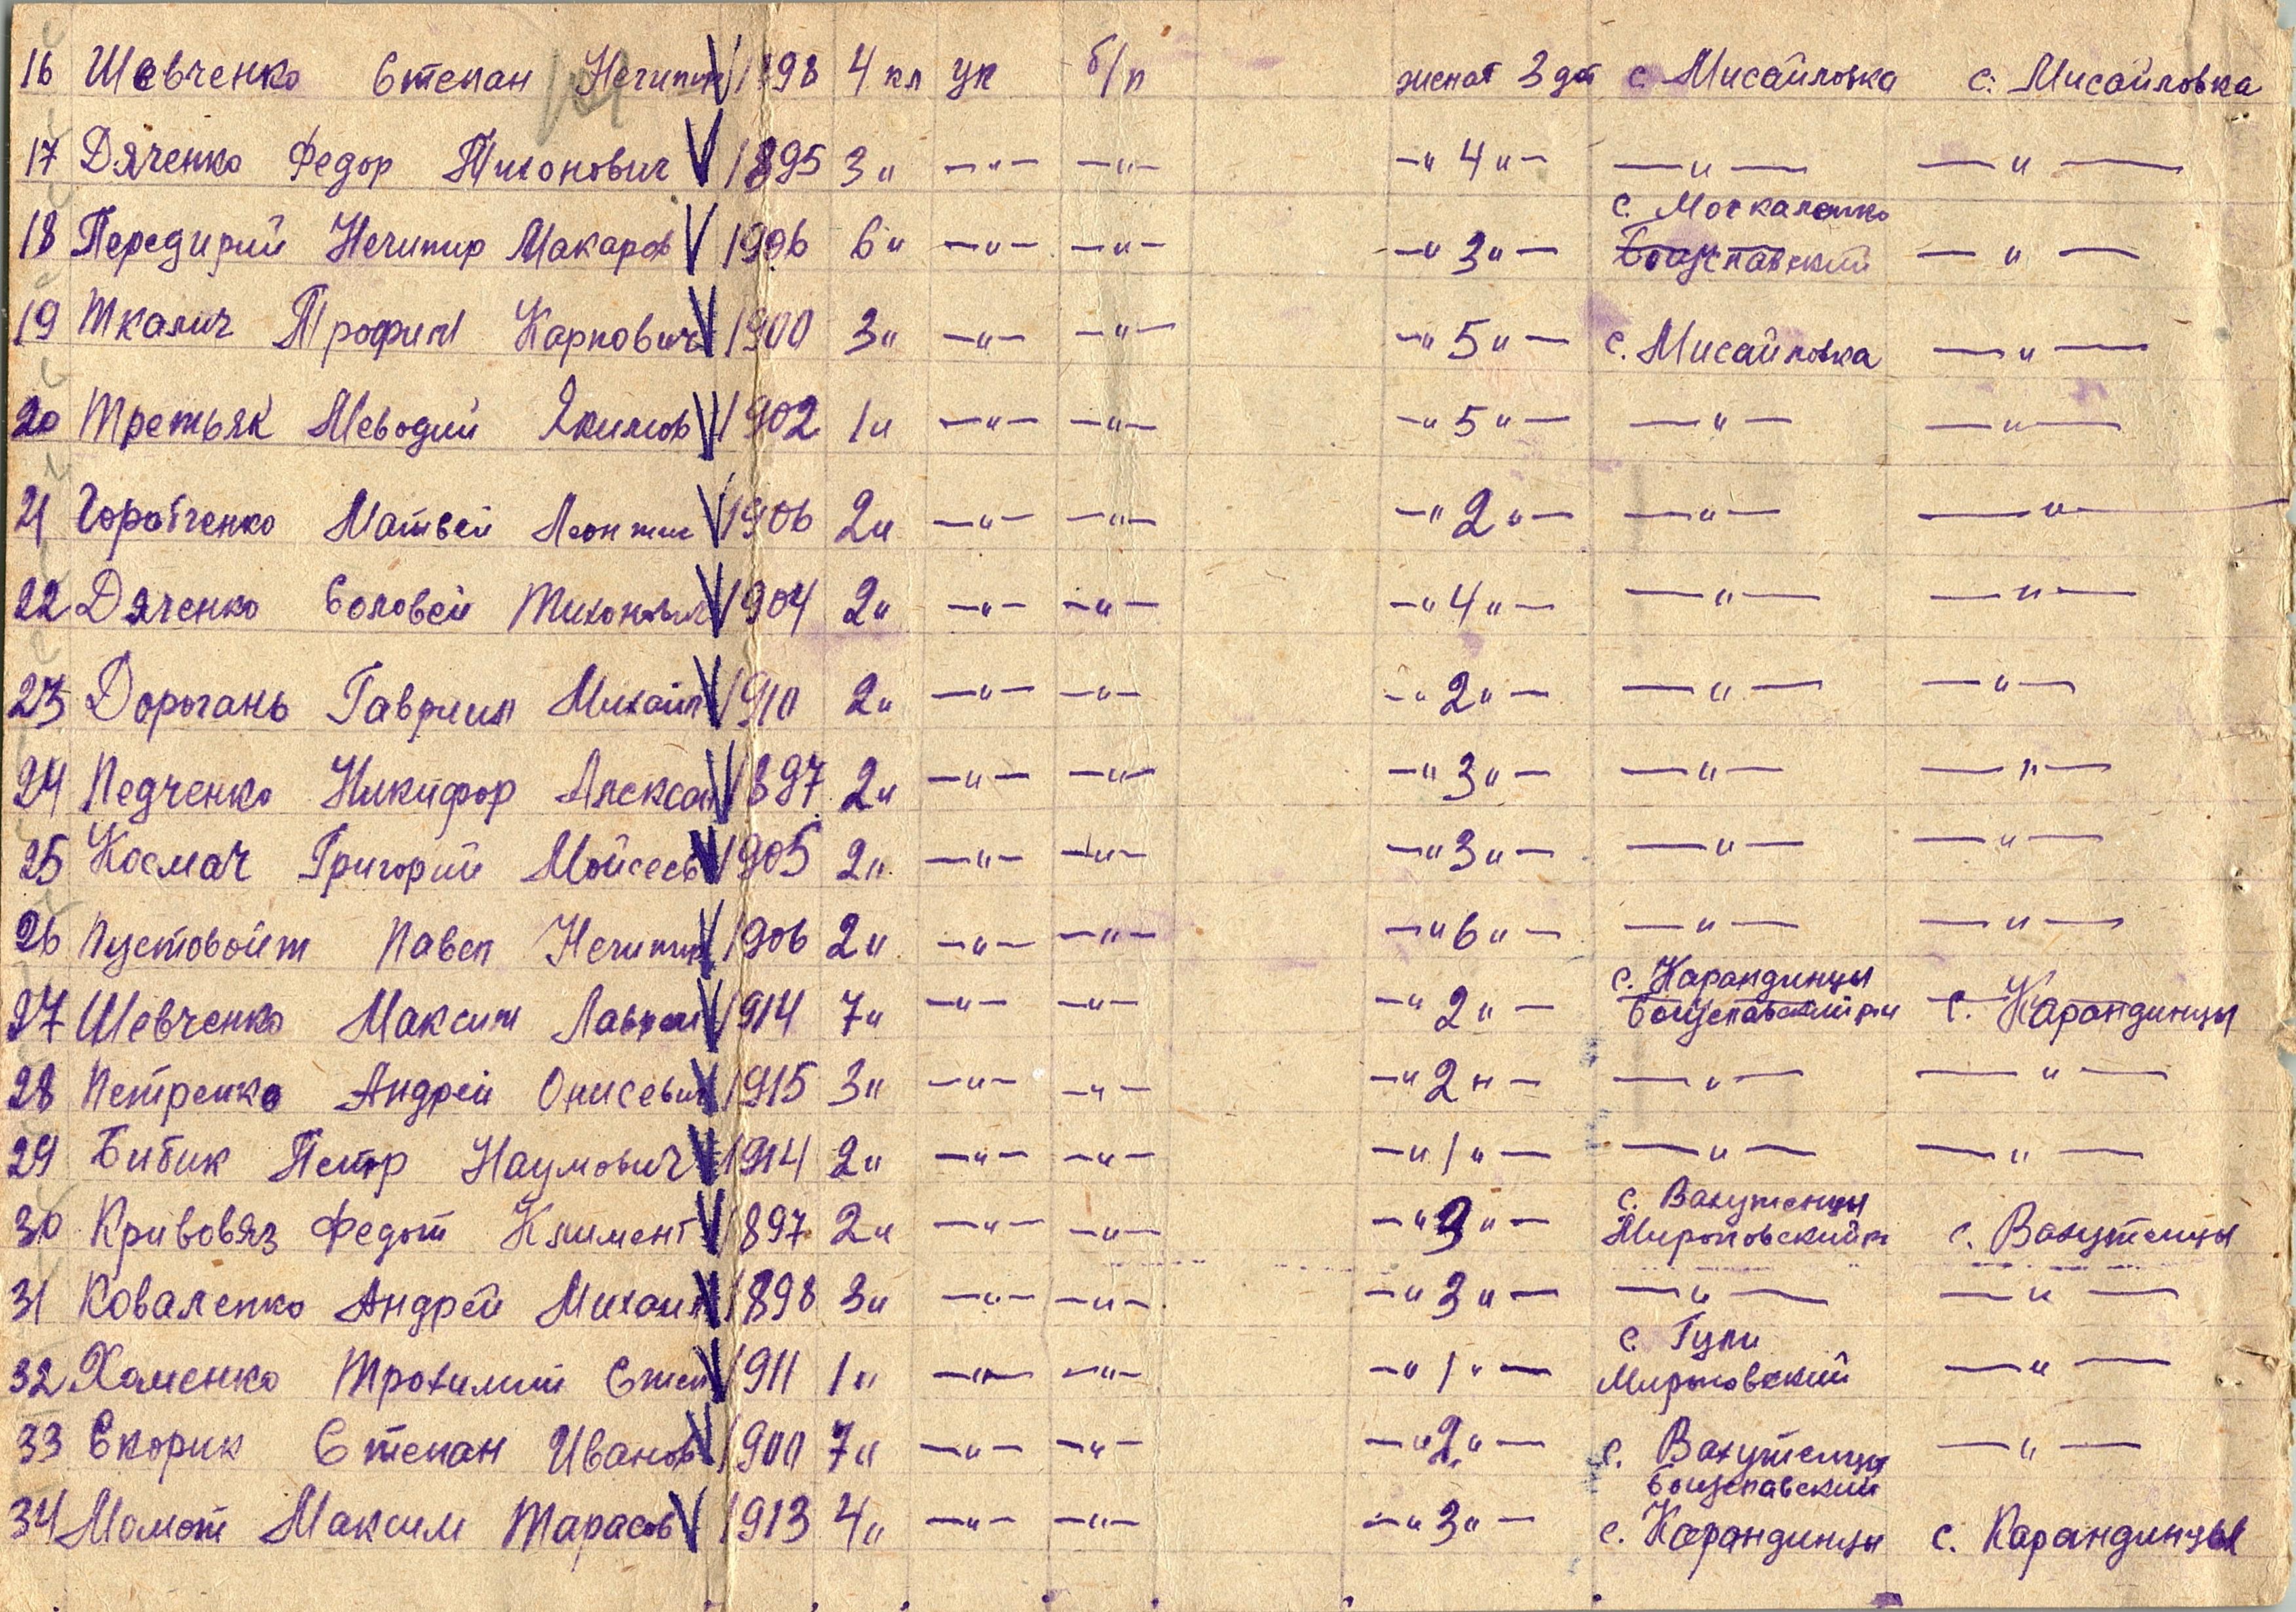 16 Шевченко Степан Нечипир 1898 4 кл ук б/п женат 3 дет с. Мисайловка с. Мисайловка
17 Дяченко Федор Тихонович 1895 3 " — " — — " — — " 4 " — — " — — " —
с. Москаленко
18 Передирий Нечипир Макаров 1906 6 " — " — — " — — " 3 " — Богуславский — " —
19 Ткалич Трофим Карпович 1900 3 " — " — — " — — " 5 " — с. Мисайловка — " —
20 Третьяк Меводий Якимов 1902 1 " — " — — " — — " 5 " — — " — — " —
21 Горобченко Матвей Леонтие 1906 2 " — " — — " — — " 2 " — — " — — " —
22 Дяченко Соловей Тихонович 1904 2 " — " — — " — — " 4 " — — " — — " —
23 Дорогань Гавриил Михайл 1910 2 " — " — — " — — " 2 " — — " — — " —
24 Педченко Никифор Алексан 1897 2 " — " — — " — — " 3 " — — " — — " —
25 Космач Григорий Мойсеев 1905 2 " — " — — " — — " 3 " — — " — — " —
26 Пустовойт Павел Нечипир 1906 2 " — " — — " — — " 6 " — — " — — " —
с. Карандинцы
27 Шевченко Максим Лаврен 1914 7 " — " — — " — — " 2 " — Богуславский рн с. Карандинцы
28 Петренко Андрей Онисевич 1915 3 " — " — — " — — " 2 " — — " — — " —
29 Бибик Петр Наумович 1914 2 " — " — — " — — " 1 " — — " — — " —
с. Вахутенцы
30 Кривовяз Федот Климент 1897 2 " — " — — " — — " 3 " — Мироновский р с. Вахутенцы
31 Коваленко Андрей Михаил 1898 3 " — " — — " — — " 3 " — — " — — " —
с. Гули
32 Хоменко Трохимий Степ 1911 1 " — " — — " — — " 1 " — Мироновский — " —
33 Скорик Степан Иванов 1900 7 " — " — — " — — " 2 " — с. Вахутенцы — " —
Богуславский
34 Момот Максим Тарасов 1913 4 " — " — — " — — " 3 " — с. Карандинцы с. Карандинцы